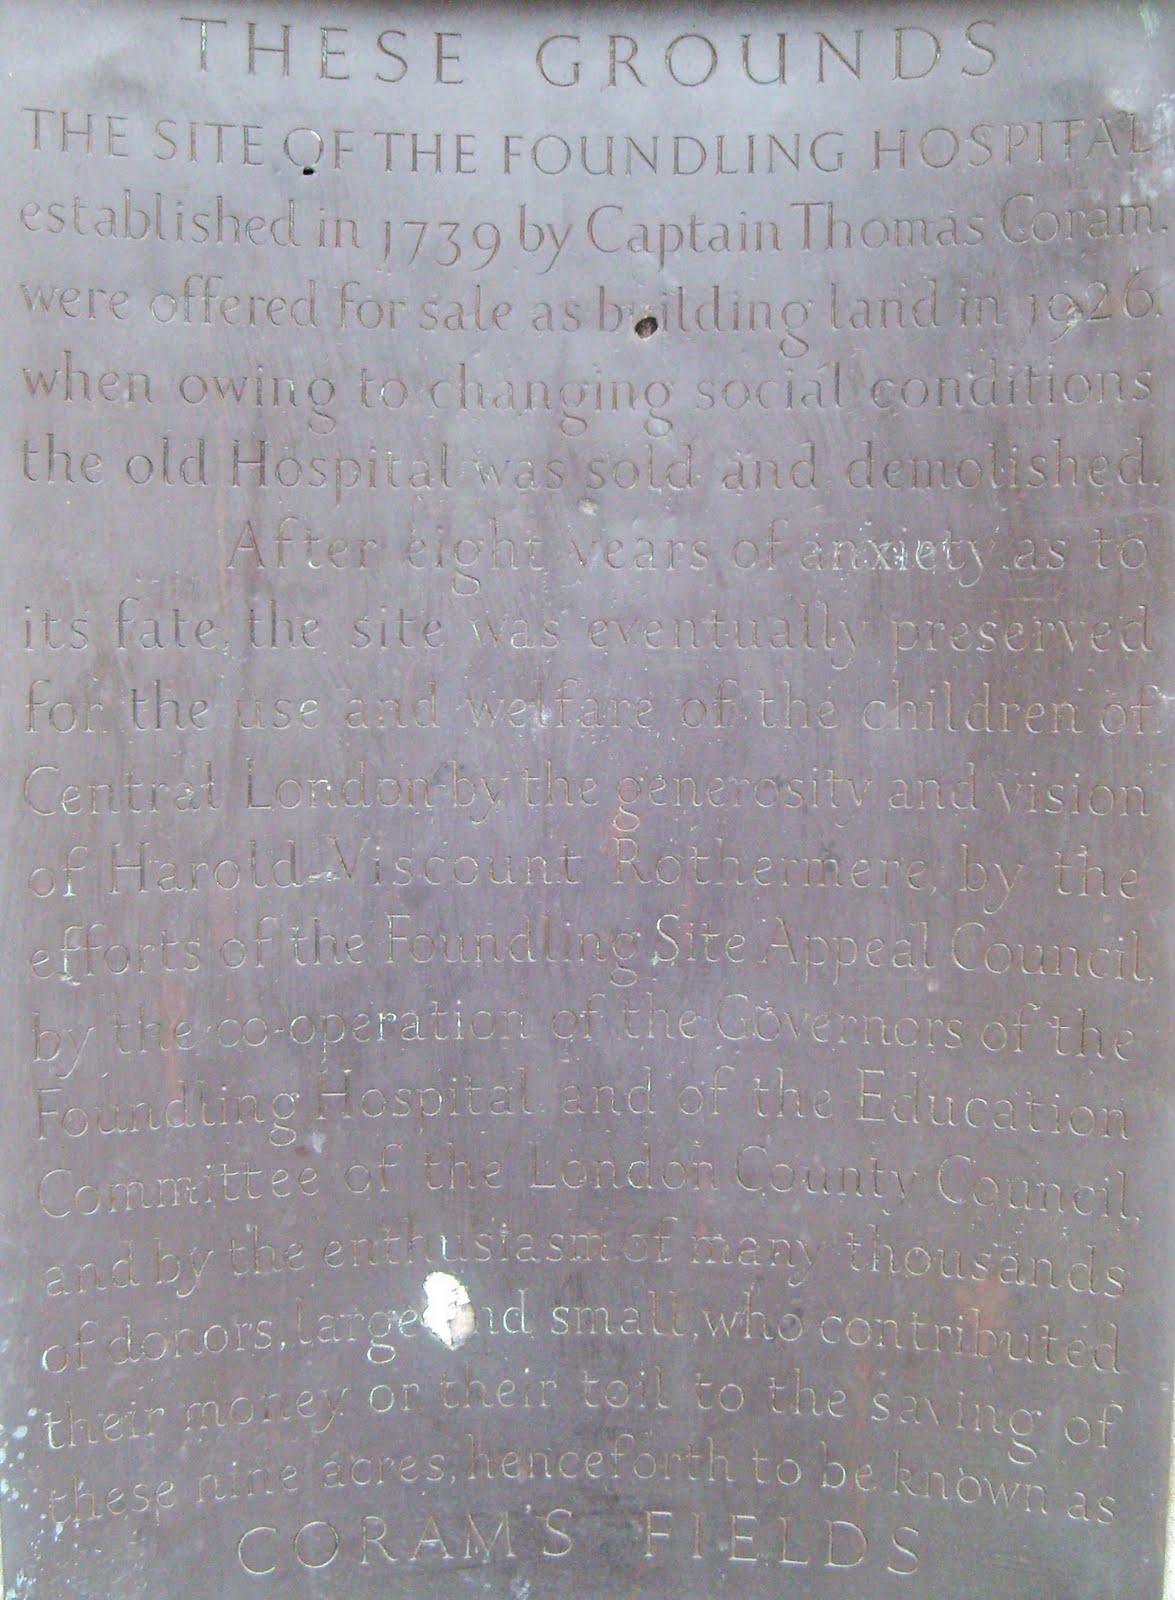 THESE GROUNDS
THE SITE OF THE FOUNDLING HOSPITAL
established in 1739 by Captain Thomas Coram.
were offered for sale as building land in 1926.
when owing to changing social conditions
the old Hospital was sold and demolished.
After eight years of anxiety as to
its fate, the site was eventually preserved
for the use and welfare of the children of
Central London by the generosity and vision
of Harold Viscount Rothermere, by the
efforts of the Foundling Site Appeal Council,
by the co-operation of the Governors of the
Foundling Hospital and of the Education
Committee of the London County Council,
and by the enthusiasm of many thousands
of donors, large and small, who contributed
their money or their toil to the saving of
these nine acres, henceforth to be known as
CORAM'S FIELDS